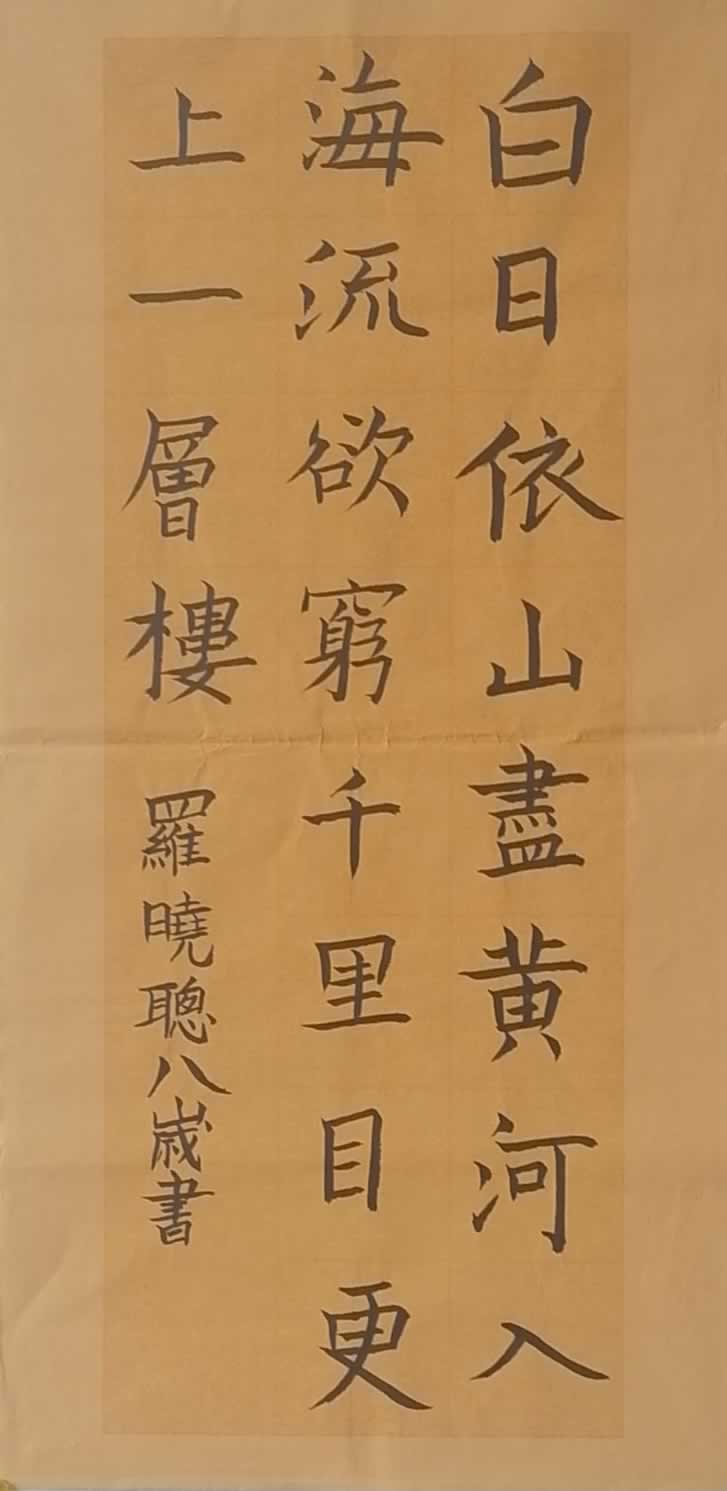 白日依山盡黄河入
海流欲窮千里目更
上一層樓 羅曉聰八歲書